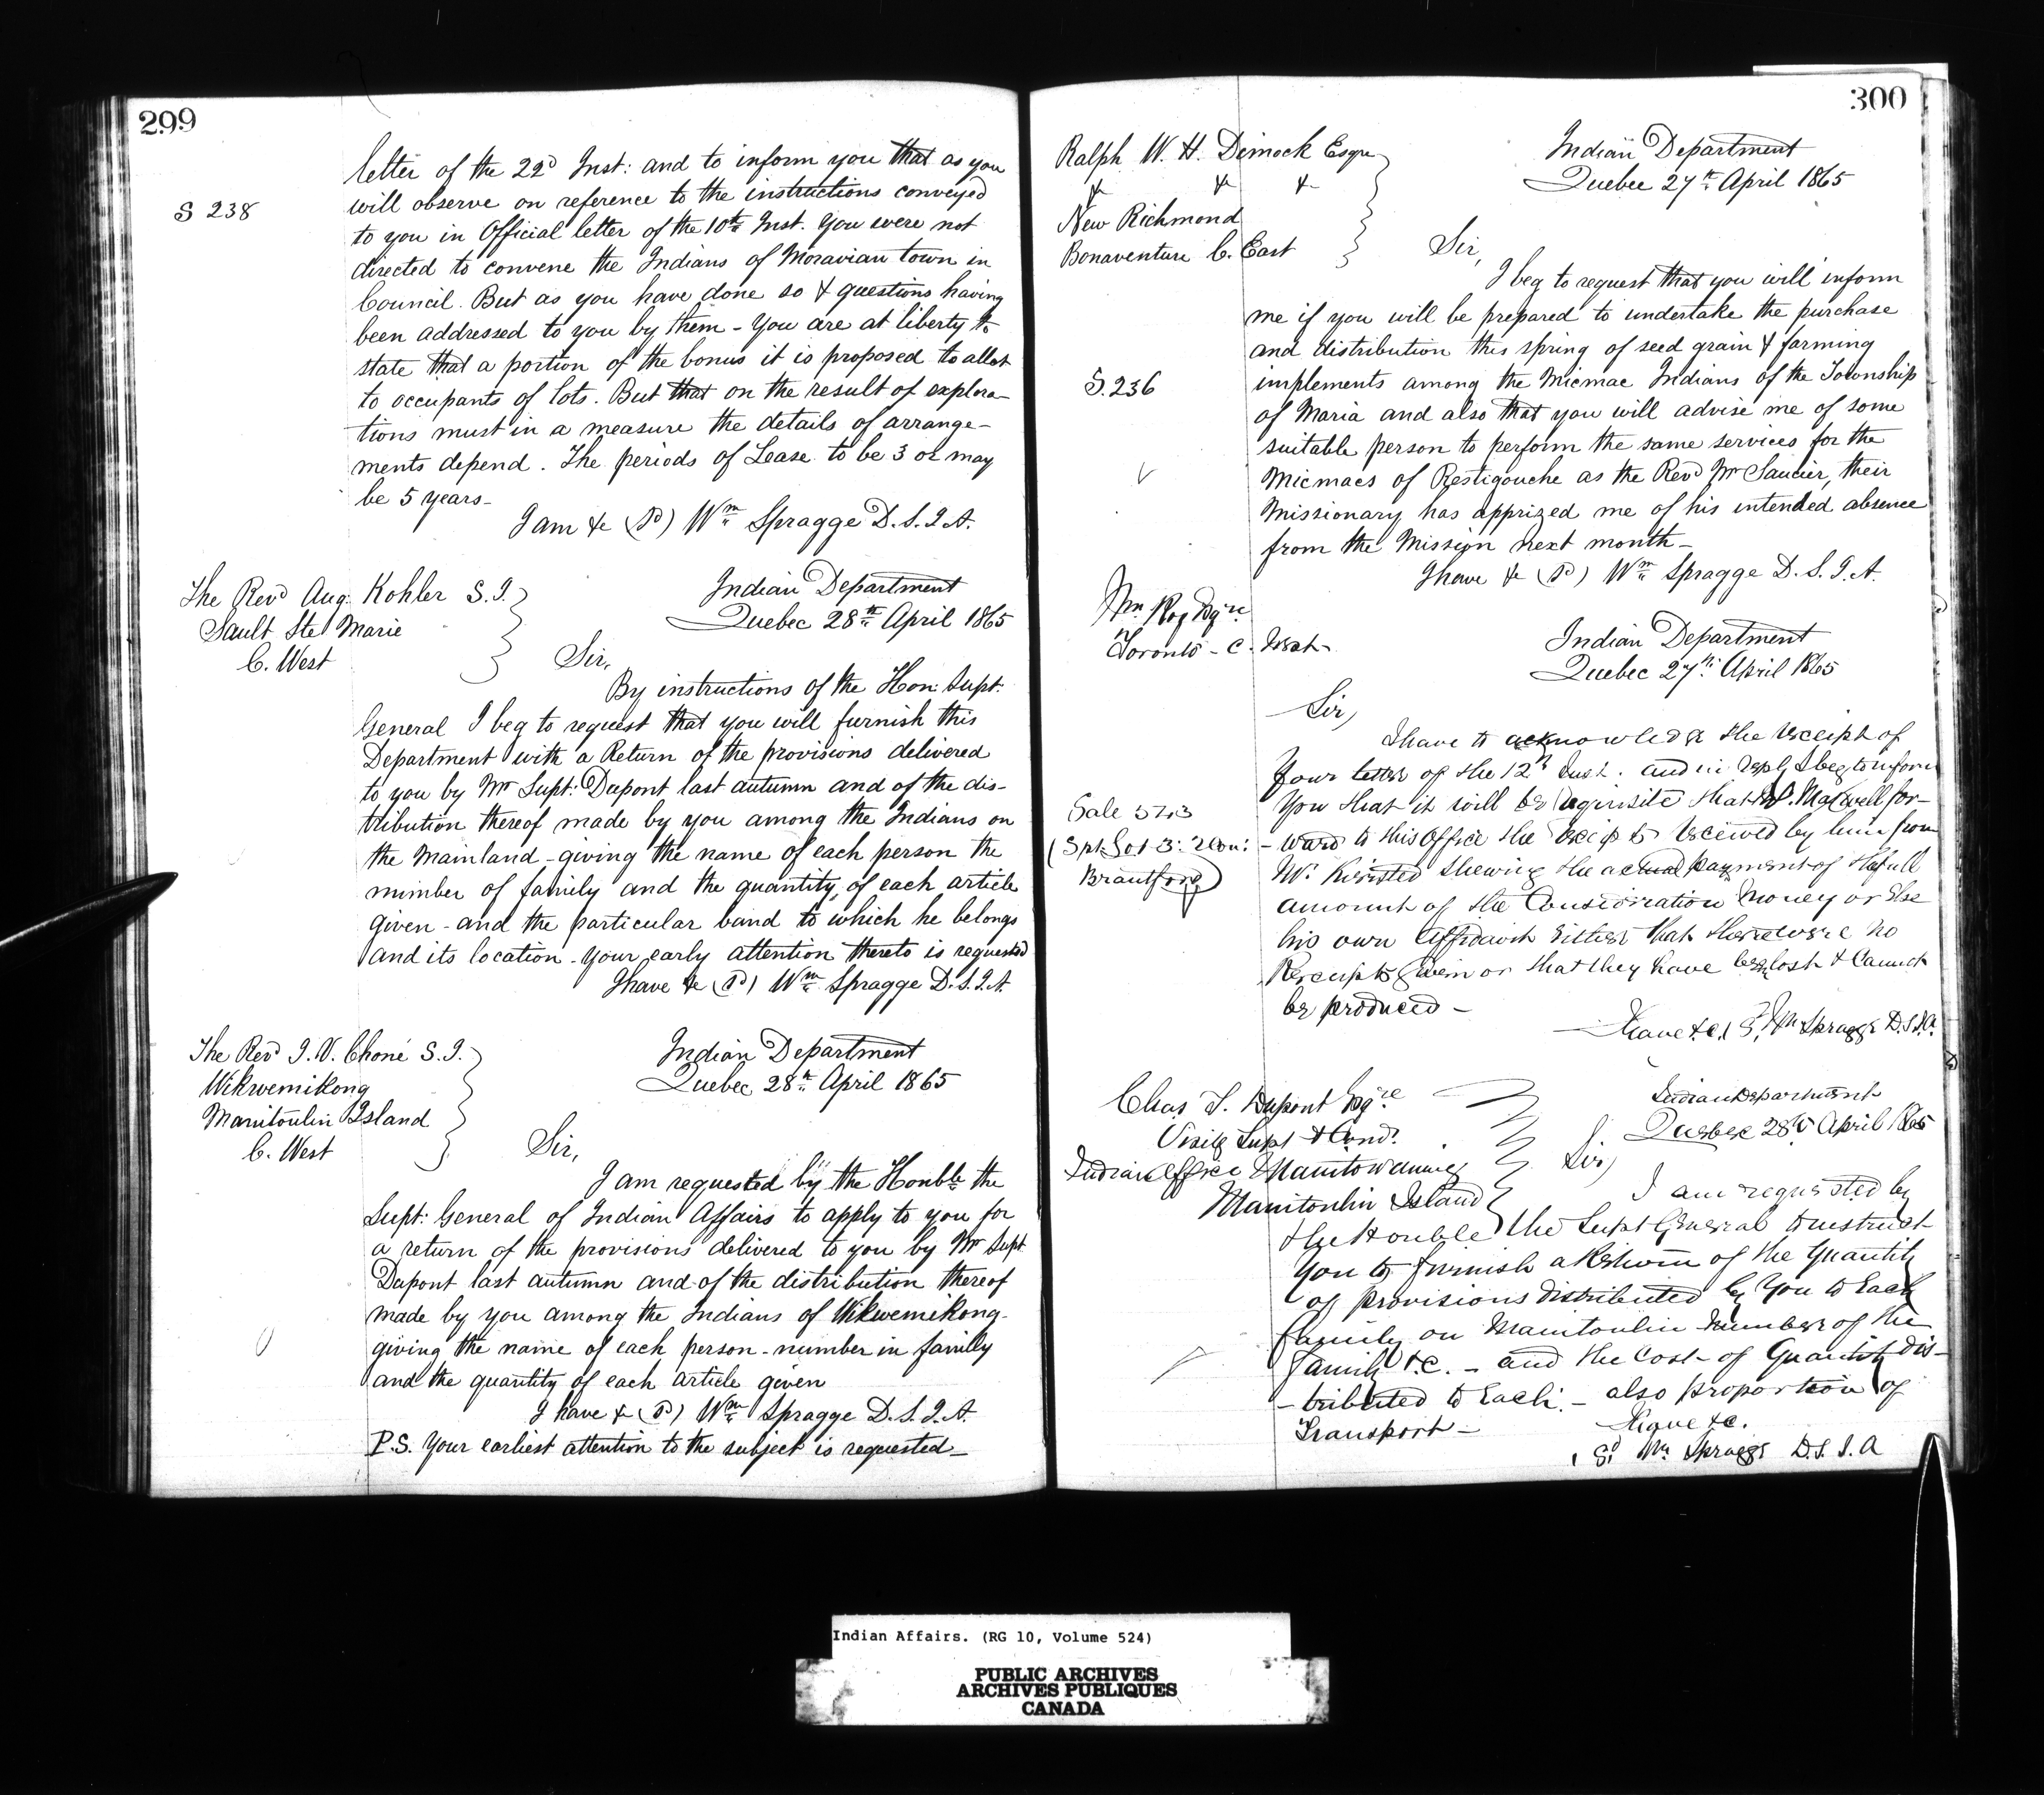 299
letter of the 22d Inst: and to inform you that as you
will observe on reference to the instructions conveyed
S 238
to you in Official letter of the 10th Inst. You were not
directed to convene the Indians of Moravian town in
Council. But as you have done so & questions having
been addressed to you by them - You are at liberty to
state that a portion of the bonus it is proposed to allot
to occupants of lots. But that on the result of explora-
tions must in a measure the details of arrange-
ments depend. The periods of Lease to be 3 or may
be 5 years -
I am &c (Sd) Wm Spragge D.S.I.A.
The Revd Aug: Kohler S.J.
Sault Ste Marie
C. West
Indian Department
Quebec 28th April 1865
Sir,
By instructions of the Hon: Supt:
General I beg to request that you will furnish this
Department with a Return of the provisions delivered
to you by Mr Supt: Dupont last autumn and of the dis-
tribution thereof made by you among the Indians on
the Mainland - giving the name of each person the
number of family and the quantity of each article
given - and the particular band to which he belongs
and its location - Your early attention thereto is requested
I have &c (Sd) Wm Spragge D.S.I.A.
The Revd J.V. Choné S.J.
Wikwemikong
Manitoulin Island
C. West
Indian Department
Quebec 28th April 1865
Sir,
I am requested by the Honble the
Supt: General of Indian Affairs to apply to you for
a return of the provisions delivered to you by Mr Supt
Dupont last autumn and of the distribution thereof
made by you among the Indians of Wikwemikong -
giving the name of each person - number in family
and the quantity of each article given
I have &c (Sd) Wm Spragge D.S.I.A.
P.S. Your earliest attention to the subject is requested -
300
Ralph W. H. Dimock Esqre
& & &
New Richmond
Bonaventure C. East
Indian Department
Quebec 27th April 1865
Sir,
I beg to request that you will inform
me if you will be prepared to undertake the purchase
and distribution this spring of seed grain & farming
S.236
implements among the Micmac Indians of the Township
of Maria and also that you will advise me of some
suitable person to perform the same services for the
Micmacs of Restigouche as the Revd Mr Saucier, their
Missionary has apprized me of his intended absence
from the Mission next month -
I have &c (Sd) Wm Spragge D.S.I.A.
Wm Esqre
Toronto - C. West -
Indian Department
Quebec 27th April 1865
Sir,
I have to acknowledge the receipt of
Your letter of the 12th Inst. and in reply I beg to inform
You that it will be requisite that Maxwell for-
Sale
(Spt Lot 3: 2 Con:
Brantford)
- ward to this Office the receipts received by him from
Mr. shewing the actual payment of the full
amount of the Consideration Money or Else
his own Affidavit Either that there were no
Receipts Given or that they have been lost & Cannot
be produced -
I have &c. Sd Wm Spragge D.S.I.A.
Chas T. Dupont Esqre
Visitg Supt &
Indian Office Manitowaning
Manitoulin Island
Indian Department
Quebec 28th April 1865
Sir,
I am requested by
the Honble the Supt General to instruct
You to furnish a Return of the Quantity
of provisions distributed by You to Each
family on Manitoulin Number of the
family &c. - and the Cost - of Quantity dis-
- tributed to Each: - also proportion of
Transport -
I have &c.
Sd Wm Spragge D.S.I.A
Indian Affairs. (RG 10, Volume 524)
PUBLIC ARCHIVES
ARCHIVES PUBLIQUES
CANADA